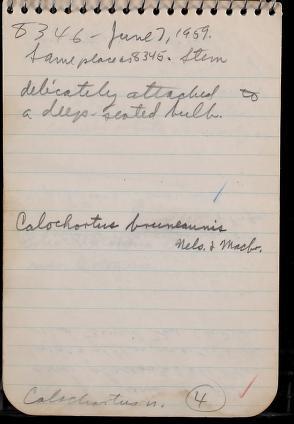 8346 - June 7, 1959.
Same place as 8345. Stem
delicately attached to
a deep-seated bulb.
Calochortus bruneaunis
Nels. & Macbr.
Calochortus
4